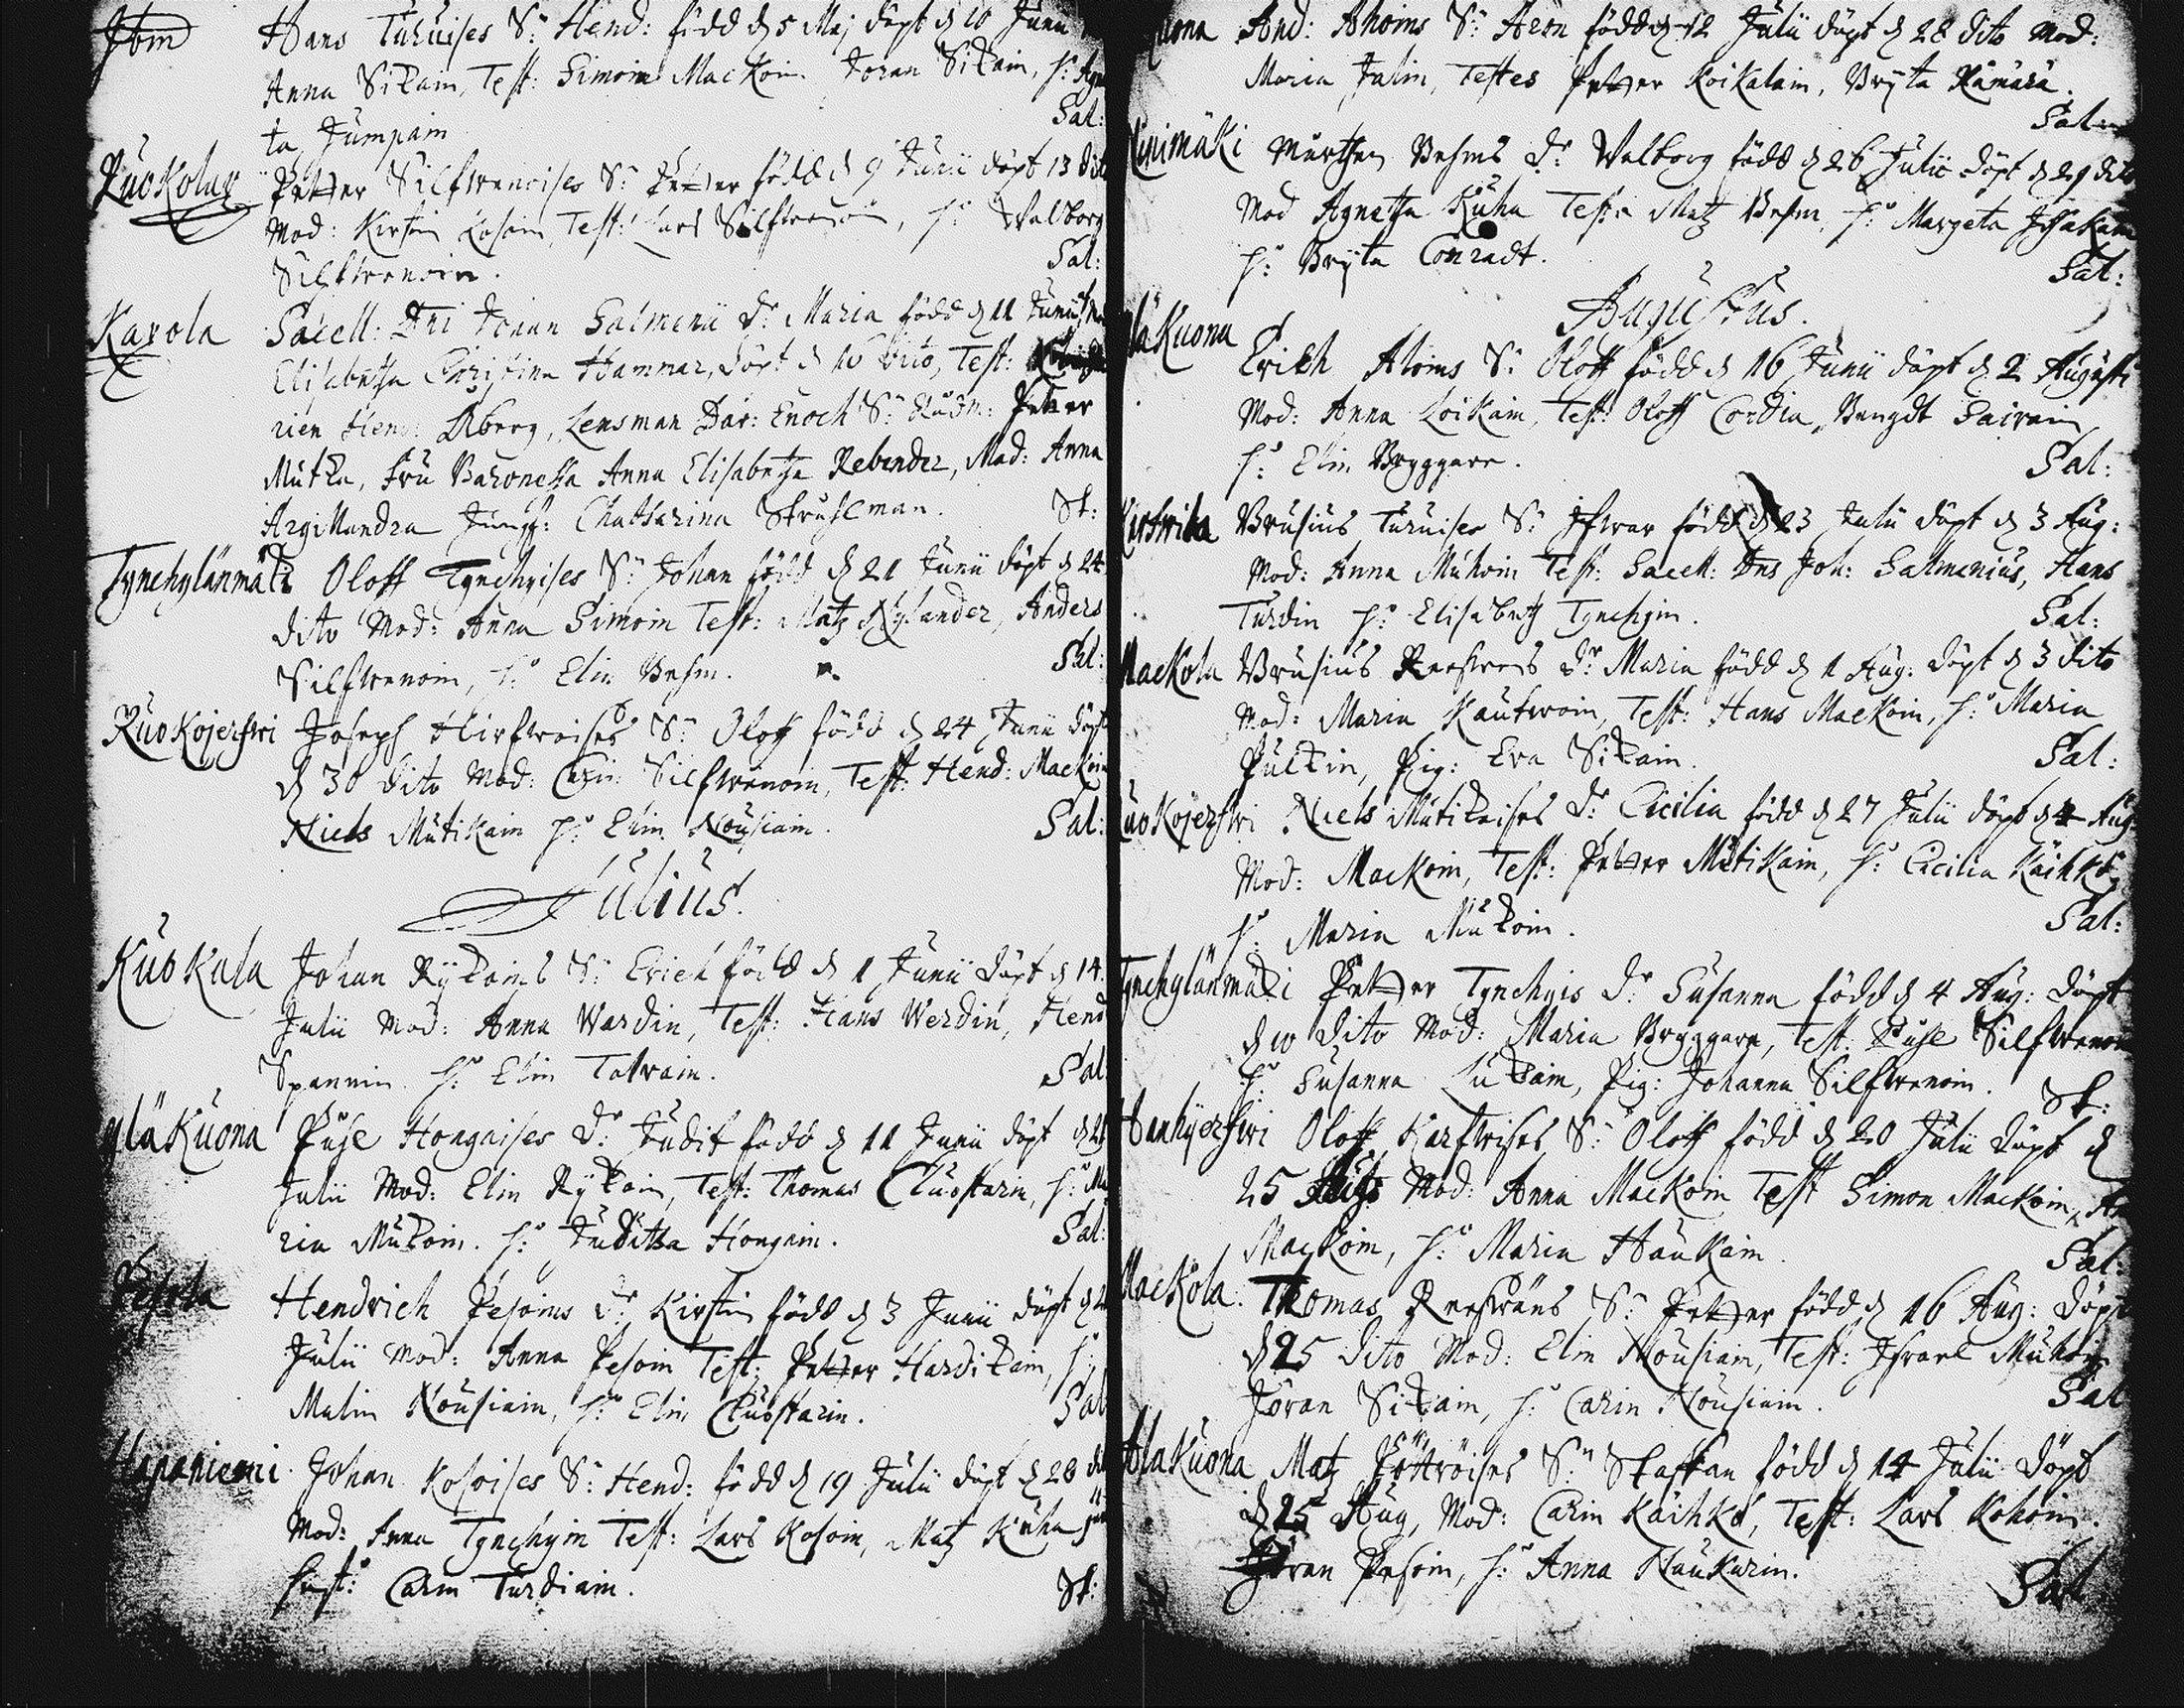 Ibm Hans Turuises S: Hend: född d 5 Maj döpt d 10 Junii
Anna Sikain, Test: Simoin Mackoin Joran Sikain, h: Agne
ta Jumpain Sal:
Ruokolax Petter Silfwenoises S: Petter född d 9 Junii döpt 13 dito
Mod: Kirstin Kosoin, Test: Lars Silfwenoin, h: Walborg
Silfwenoin. Sal:
Karola Sacell: Dni Johan Salmenii D: Maria född d 11 Junii, Mod
Elisabetha Christina Hammar, döpt d 16 dito, Test:
rien Hend: Åberg, Lensman Dar: Enoch S: Petter
Mutka, Fru Baronessa Anna Elisabetha Rebinder, Mad: Anna
Argillandra Jungf: Chatharina Struhlman. St:
Tynchylänmäki Oloff Tynchyises S: Johan född d 21 Junii döpt d 24
dito Mod: Anna Simoin Test: Matz Nylander, Anders
Silfwenoin, h: Elin Behm. Sal:
Ruokojerfwi Joseph Hirfwoises S: Oloff född d 24 Junii döpt
d 30 dito Mod: Carin Silfwenoin, Test: Hend: Mackoin
Niels Mutikain h: Elin Nousiain. Sal:
Julius.
Kuokala Johan Rykoins S: Erich född d 1 Junii döpt d 14
Julii Mod: Anna Wardin, Test: Hans Werdin, Hend
Spannin h: Elin Talwain. Sal:
yläkuona Påhl Hongaises D: Judit född d 11 Junii döpt d 21
Julii Mod: Elin Rykoin, Test: Thomas Cluostarin, h: Ma
ria Mukoin. h: Juditha Hongain. Sal:
Pesola Hendrich Pesoins D: Kirstin född d 3 Junii döpt d 2
Julii Mod: Anna Pesoin Test: Petter Hardikain, h:
Malin Nousiain, h: Elin Cluostarin. Sal
Haponiemi Johan Kosoises S: Hend: född d 19 Julii döpt d 28 dito
Mod: Anna Tynchyin Test: Lars Kosoin, Matz Kuha
hust: Carin Turdiain. St:
uona And: Ahoins S: Aron född d 12 Julii döpt d 28 dito Mod:
Maria Jalin, Testes Petter Koikalain, Bryta Rämärä.
Sal:
Kinimäki Mårthen Behms D: Walborg född d 26 Julii döpt d 29 dito
Mod Agnetha Kuha Test: Matz Behm, h: Margeta Ihakain
h: Bryta Conradt. Sal:
Augustus.
läkuona Erich Aloins S: Oloff född d 16 Junii döpt d 2 Augusti
Mod: Anna Loikain, Test: Oloff Cordia, Bengdt Sairain
h: Elin Bryggare. Sal:
Kirfwila Brusius Turuises S: Ifwar född d 23 Julii döpt d 3 Aug:
Mod: Anna Muhoin Test: Sacell: Dns Joh: Salmenius, Hans
Turdin h: Elisabeth Tynchyin. Sal:
Mackola Brusius Reefwens D: Maria född d 1 Aug: döpt d 3 dito
Mod: Maria Kautwoin, Test: Hans Mackoin, h: Maria
Pulkin, Pig: Eva Sikain. Sal:
uokojerfwi Niels Mutikaises D: Cicilia född d 27 Julii döpt d 4 Aug:
Mod: Mackoin, Test: Petter Mutikain, h: Cicilia Käihkö,
h: Maria Mukoin. Sal:
Tynchylänmäki Petter Tynchyis D: Susanna född d 4 Aug: döpt
d 10 dito Mod: Maria Bryggare, Test: Påhl Silfwenoin
h: Susanna Lukain, Pig: Johanna Silfwenoin. St:
Hanhijerfwi Oloff Karfwises S: Oloff född d 20 Julii döpt d
25 Aug: Mod: Anna Mackoin Test Simon Mackoin, An
Mackoin, h: Maria Haukain. Sal:
Mackola. Thomas Reefwäns S: Petter född d 16 Aug: döpt
d 25 dito Mod: Elin Nousiain, Test: Israel Muhoin
Jöran Sikain, h: Carin Nousiain. Sal
Alakuona Matz Pöttröises S: Staffan född d 14 Julii döpt
d 25 Aug, Mod: Carin Käihkö, Test: Lars Kohoin.
Jöran Pesoin, h: Anna Naukarin. Sal